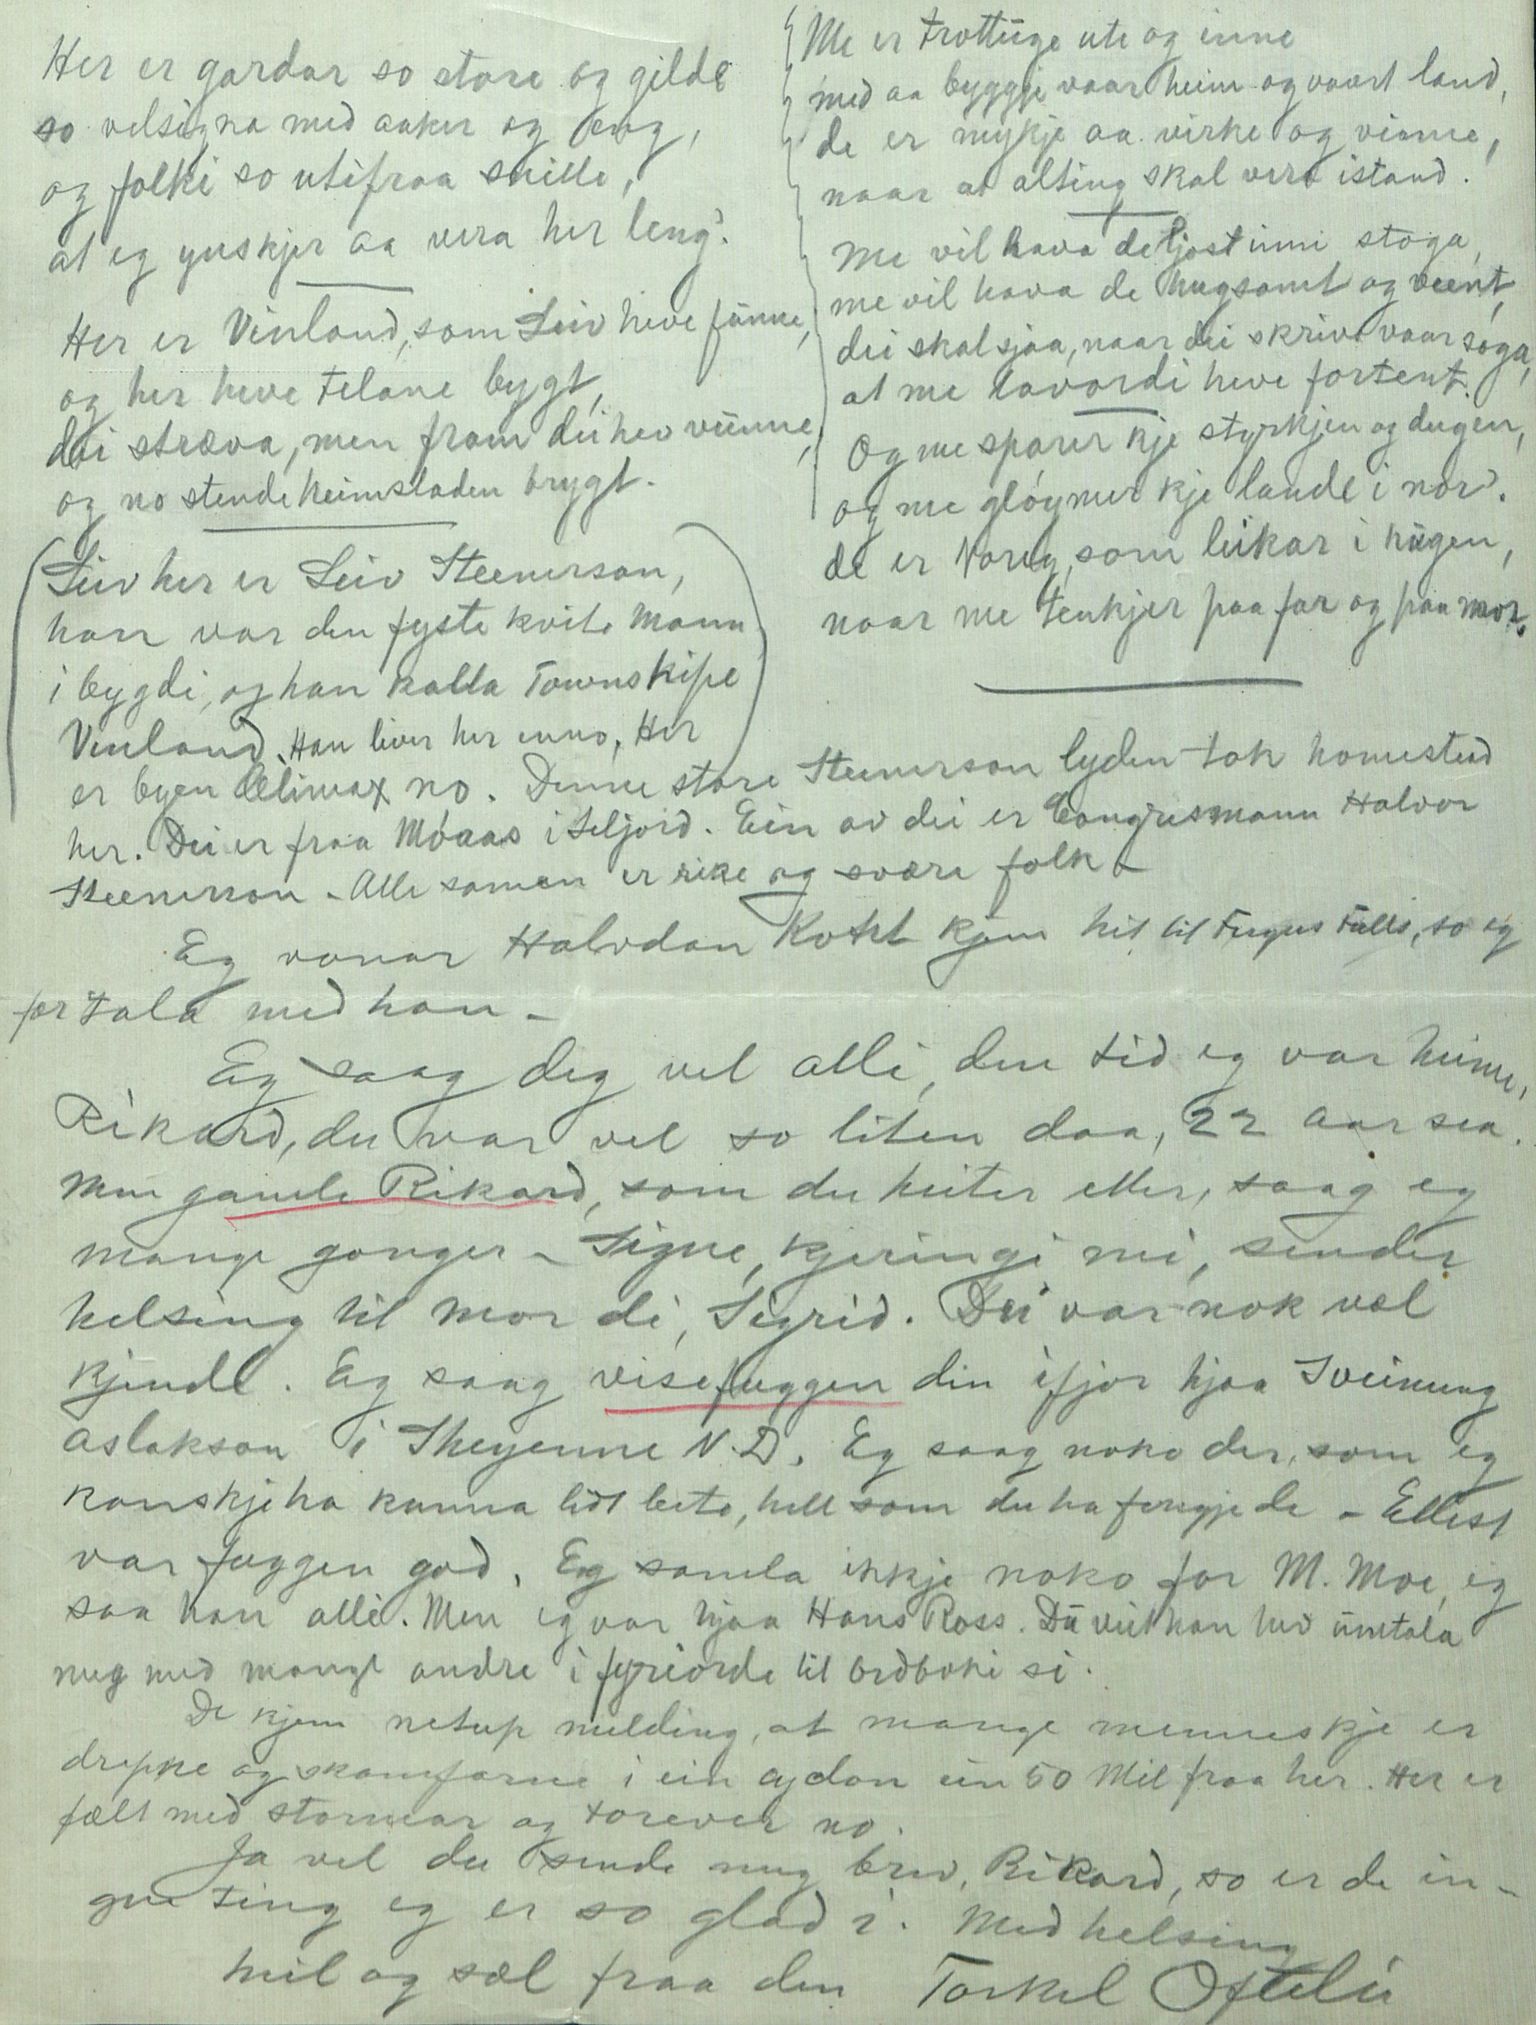 Her er gardar so store og gilde
so velsigna med aaker og eng,
og folki so utifraa snille,
at eg ynskjer aa vera her leng'.
Her er Vinland, som Leiv heve fünne,
og her heve telane bygt,
dei stræva, men fram dei hev vünne,
og no stende heimstaden trygt.
(Leiv her er Leiv Steenerson,
han var den fyste kvite mann
i bygdi, og han kalla Townskipe
Vinland. Han liver her enno, Her
er byen Climax no. Denne store Steenerson lyden tok homestead
her. Dei er fraa Móaas i Seljord. Ein av dei er Congresmann Halvor
Steenerson - Alle saman er rike og svære folk -
Me er trottuge ute og inne
med aa byggje vaar heim og vaart land,
de er mykje aa virke og vinne,
naar at alting skal vera istand.
Me vil hava de ljost inni stoga,
me vil hava de hugsamt og veent,
dei skal sjaa, naar dei skrive vaar soga,
at me lavordi heve fortent.
Og me sparer kje styrkjen og dugen,
og me gløymer kje lande i nor'.
de er Noreg, som leikar i hügen,
naar me tenkjer paa far og paa mor.
Eg vonar Halvdan Koht kjem hit til Fergus Falls, so eg
fær tala med han -
Eg saag deg vel alli, den tid eg var heime,
Rikard, du var vel so liten daa, 22 aar sea.
Men gamle Rikard, som du heiter etter, saag eg
mange gonger - Signe, kjeringi mi, sender
helsing til mor di, Sigrid. Dei var nok væl
kjende. Eg saag visefuggen din ifjor hjaa Sveinung
Aslakson i Sheyenne N.D. Eg saag noko der, som eg
kanskje ha kunna litt betre, hell som du ha fengje de - Ellest
var fuggen god. Eg samla ikkje noko for M. Moe, eg
saa han alli. Men eg var hjaa Hans Ross. Dü veit han hev ümtala
meg med mange andre i fyreorde til ordboki si.
De kjem netup melding, at mange menneskje er
drepne og skamfarne i ein cyclon ein 50 Mil fraa her. Her er
fælt med stormar og torever no.
Ja vel du sende meg brev, Rikard, so er de in-
gen ting eg er so glad i. Med helsing
heil og sæl fraa den Torkel Oftelie